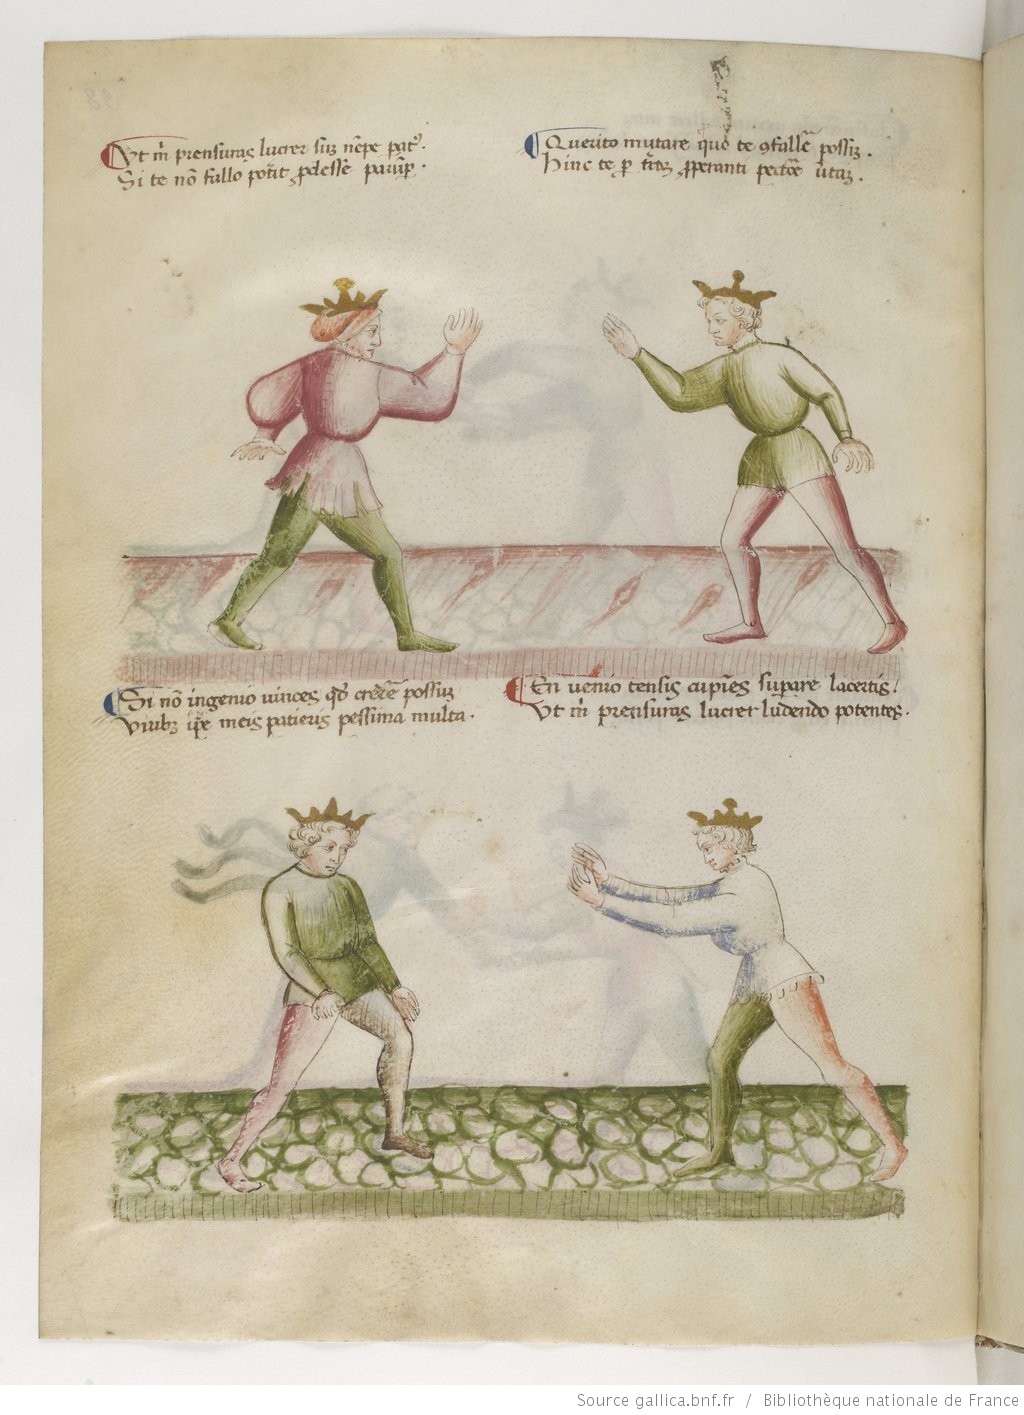 Vt m̄ prensuras lucrer sū nēpe pat᾽.
Si te nō fallo potit ꝓdesse parūꝑ.
Querito mutare quo te ꝯfallē possim.
Hinc te ꝑ ꝓperanti utaꝫ.
Si nō ingenio uinces qđ credē possū
Viribꝫ ip̄e meis patieris pessima multa.
En uenio tensis cupiēs suꝑare lacertis.
Vt m̄ prensuras lucrer ludendo potentes.
Source gallica.bnf.fr / Bibliothèque nationale de France